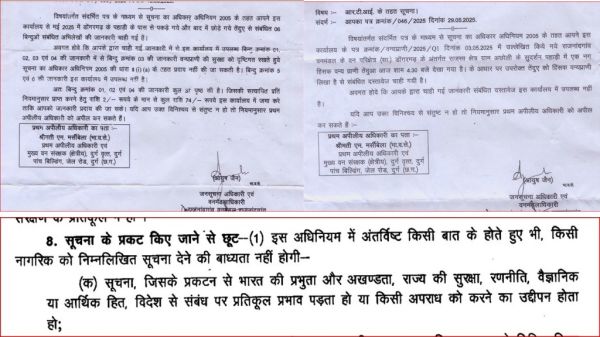 विषयांतर्गत संदर्भित पत्र के माध्यम से सूचना का अधिकार अधिनियम 2005 के तहत आपने इस
कार्यालय से मई 2025 में डोंगरगढ़ के पहाड़ी के पास से पकड़े गये और बाद में छोड़े गए तेंदुए से संबंधित 06
बिन्दुओं संबंधित अभिलेखों की जानकारी चाही गई है।
अवगत होवे कि आपके द्वारा चाही गई जानकारी में से इस कार्यालय में उपलब्ध बिन्दु क्रमांक 01,
02, 03 एवं 04 की जानकारी में से बिन्दु क्रमांक 03 की जानकारी वन्यप्राणी की सुरक्षा को दृष्टिगत रखते हुये
सूचना का अधिकार अधिनियम 2005 की धारा 8 (1) (a) के तहत प्रदाय नहीं की जा सकती है। बिन्दु क्रमांक 5
एवं 6 की जानकारी इस कार्यालय में उपलब्ध नहीं है।
अतः बिन्दु क्रमांक 01, 02 एवं 04 की जानकारी कुल 37 पृष्ठ की है। जिसकी सत्यापित प्रति
नियमानुसार प्राप्त करने हेतु राशि 2/– रूपये के मान से कुल राशि 74/– रूपये इस कार्यालय में जमा करे
ताकि आपको जानकारी प्रदाय की जा सके। यदि आप उक्त विनिश्चय से संतुष्ट न हो तो नियमानुसार प्रथम
अपीलीय अधिकारी को अपील कर सकते हैं :–
प्रथम अपीलीय अधिकारी का पता :–
श्रीमती एम. मर्सीबेला (भा.व.से.)
प्रथम अपीलीय अधिकारी एवं
मुख्य वन संरक्षक (क्षेत्रीय), दुर्ग वृत्त, दुर्ग
पांच बिल्डिंग, जेल रोड, दुर्ग (छ.ग.)
(आयुष जैन) भा.व.से.
जनसूचना अधिकारी एवं
वनमंडलाधिकारी
विषय :– आर.टी.आई. के तहत सूचना।
संदर्भ :– आपका पत्र क्रमांक /046/2025 दिनांक 29.05.2025.
विषयांतर्गत संदर्भित पत्र के माध्यम से सूचना का अधिकार अधिनियम 2005 के तहत आपने इस
कार्यालय के पत्र क्रमांक/वन्यप्राणी/2025/01 दिनांक 03.05.2025 में उल्लेखित किये गये राजनांदगांव
वनमंडल के वन परिक्षेत्र (सा.) डोंगरगढ़ के अंतर्गत राजस्व क्षेत्र ग्राम अछोली के सुदर्शन पहाड़ी में एक नग
हिंसक वन्य प्राणी तेंदुआ आज शाम 4.30 बजे देखा गया है। के आधार पर उपरोक्त तेंदुए को हिंसक वन्यप्राणी
लिखा है से संबंधित दस्तावेज चाही गयी है।
अवगत होवे कि आपके द्वारा चाही गई जानकारी संबंधित दस्तावेज इस कार्यालय में उपलब्ध नहीं
है।
यदि आप उक्त विनिश्चय से संतुष्ट न हो तो नियमानुसार प्रथम अपीलीय अधिकारी को अपील
कर सकते हैं :–
प्रथम अपीलीय अधिकारी का पता :–
श्रीमती एम. मर्सीबेला (भा.व.से.)
प्रथम अपीलीय अधिकारी एवं
मुख्य वन संरक्षक (क्षेत्रीय), दुर्ग वृत्त, दुर्ग
पांच बिल्डिंग, जेल रोड, दुर्ग (छ.ग.)
(आयुष जैन) भा.व.से.
जनसूचना अधिकारी एवं
वनमंडलाधिकारी
8. सूचना के प्रकट किए जाने से छूट–(1) इस अधिनियम में अंतर्विष्ट किसी बात के होते हुए भी, किसी
नागरिक को निम्नलिखित सूचना देने की बाध्यता नहीं होगी–
(क) सूचना, जिसके प्रकटन से भारत की प्रभुता और अखण्डता, राज्य की सुरक्षा, रणनीति, वैज्ञानिक
या आर्थिक हित, विदेश से संबंध पर प्रतिकूल प्रभाव पड़ता हो या किसी अपराध को करने का उद्दीपन होता
हो;